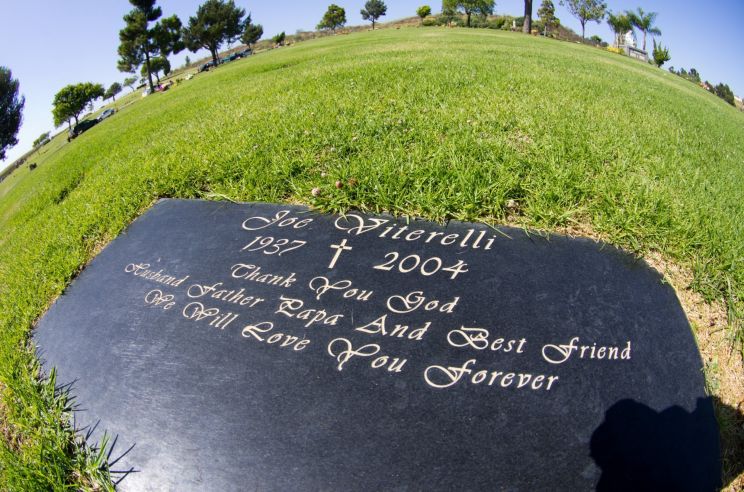 Joe Viterelli
1937 ✝ 2004
Thank You God
Husband Father Papa And Best Friend
We Will Love You Forever